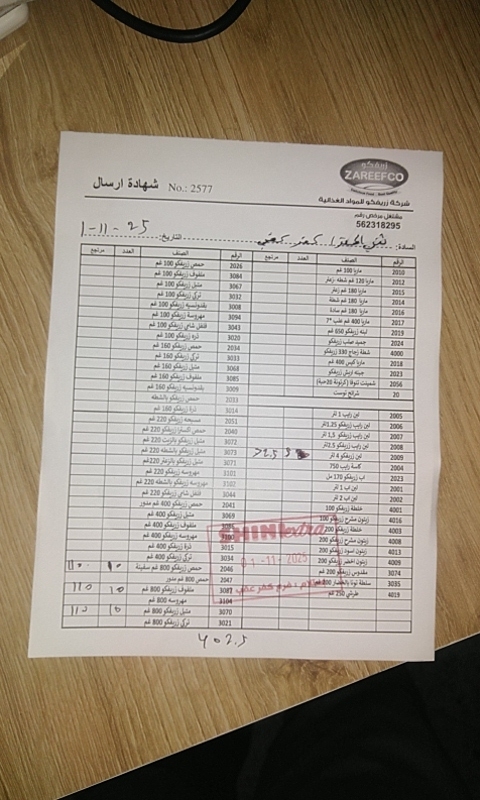 زريفكو
ZAREEFCO
شركة زريفكو للمواد الغذائية
مشتغل مرخص رقم
562318295
شهادة ارسال No.: 2577
السادة:
التاريخ: 1-11-25
الرقم الصنف العدد مرتجع الرقم الصنف العدد مرتجع
2010 ماريا 100 غم 2026 حمص زريفكو 100 غم
2012 ماريا 120 غم شطة 3084 ملفوف زريفكو 100 غم
2015 ماريا 180 غم زعتر 3067 متبل زريفكو 100 غم
2014 ماريا 180 غم شطة 3032 تركي زريفكو 100 غم
2016 ماريا 180 غم سادة 3008 بقدونسية زريفكو 100 غم
2017 3094 مهروسة زريفكو 100 غم
2019 لبنه زريفكو 650 غم 3043 فلفل شامي زريفكو 100 غم
2024 جميد صلب زريفكو 3020 ذرة زريفكو 100 غم
4000 شطة زجاج 330 زريفكو 2034 حمص زريفكو 160 غم
2018 ماريا كيس 400 غم 3033 تركي زريفكو 160 غم
2023 3068 متبل زريفكو 160 غم
2056 3085 ملفوف زريفكو 160 غم
20 شرائح توست 3009 بقدونسية زريفكو 160 غم
2033 حمص زريفكو بالشطة
3014 ذرة زريفكو 160 غم
2005 لبن رايب 1 لتر 2051 مسبحة زريفكو 220 غم
2006 لبن رايب زريفكو 1.25لتر 2040
2007 لبن رايب زريفكو 1,5 لتر 3072 متبل زريفكو بالزيت 220 غم
2008 لبن رايب زريفكو 2.5لتر 3073 متبل زريفكو بالشطة 220 غم
2009 لبن زريفكو 4 لتر 3071 متبل زريفكو بالزعتر 220 غم
2004 كاسة رايب 750 3101 مهروسة زريفكو 220 غم
2023 اب زريفكو 170 مل 3102 مهروسة زريفكو بالشطة 220 غم
2001 لبن اب 1 لتر 3044 فلفل شامي زريفكو 220 غم
2002 لبن اب 2 لتر 2041 حمص زريفكو 400 غم مدور
4001 خلطة زريفكو 100 3069 متبل زريفكو 400 غم
4016 زيتون مشرح زريفكو 100 3086 ملفوف زريفكو 400 غم
4003 خلطة زريفكو 200 3100 مهروسة زريفكو 400 غم
4008 زيتون مشرح زريفكو 200 3015 ذرة زريفكو 400 غم
4013 زيتون اسود زريفكو 200 3034 تركي زريفكو 400 غم
4009 زيتون اخضر زريفكو 200 2046 حمص زريفكو 800 غم سفينة 10 110
3074 مقدوس زريفكو 200 غم 2047 حمص 800 غم مدور
3035 سلطة تونا بالخضار 200 3087 ملفوف زريفكو 800 غم 10 110
4019 طرشي 250 غم 3104 مهروسة 800 غم
3070 متبل زريفكو 800 غم 10 110
3021 تركي زريفكو 800 غم
SHINI extra
01-11-2025
402.5